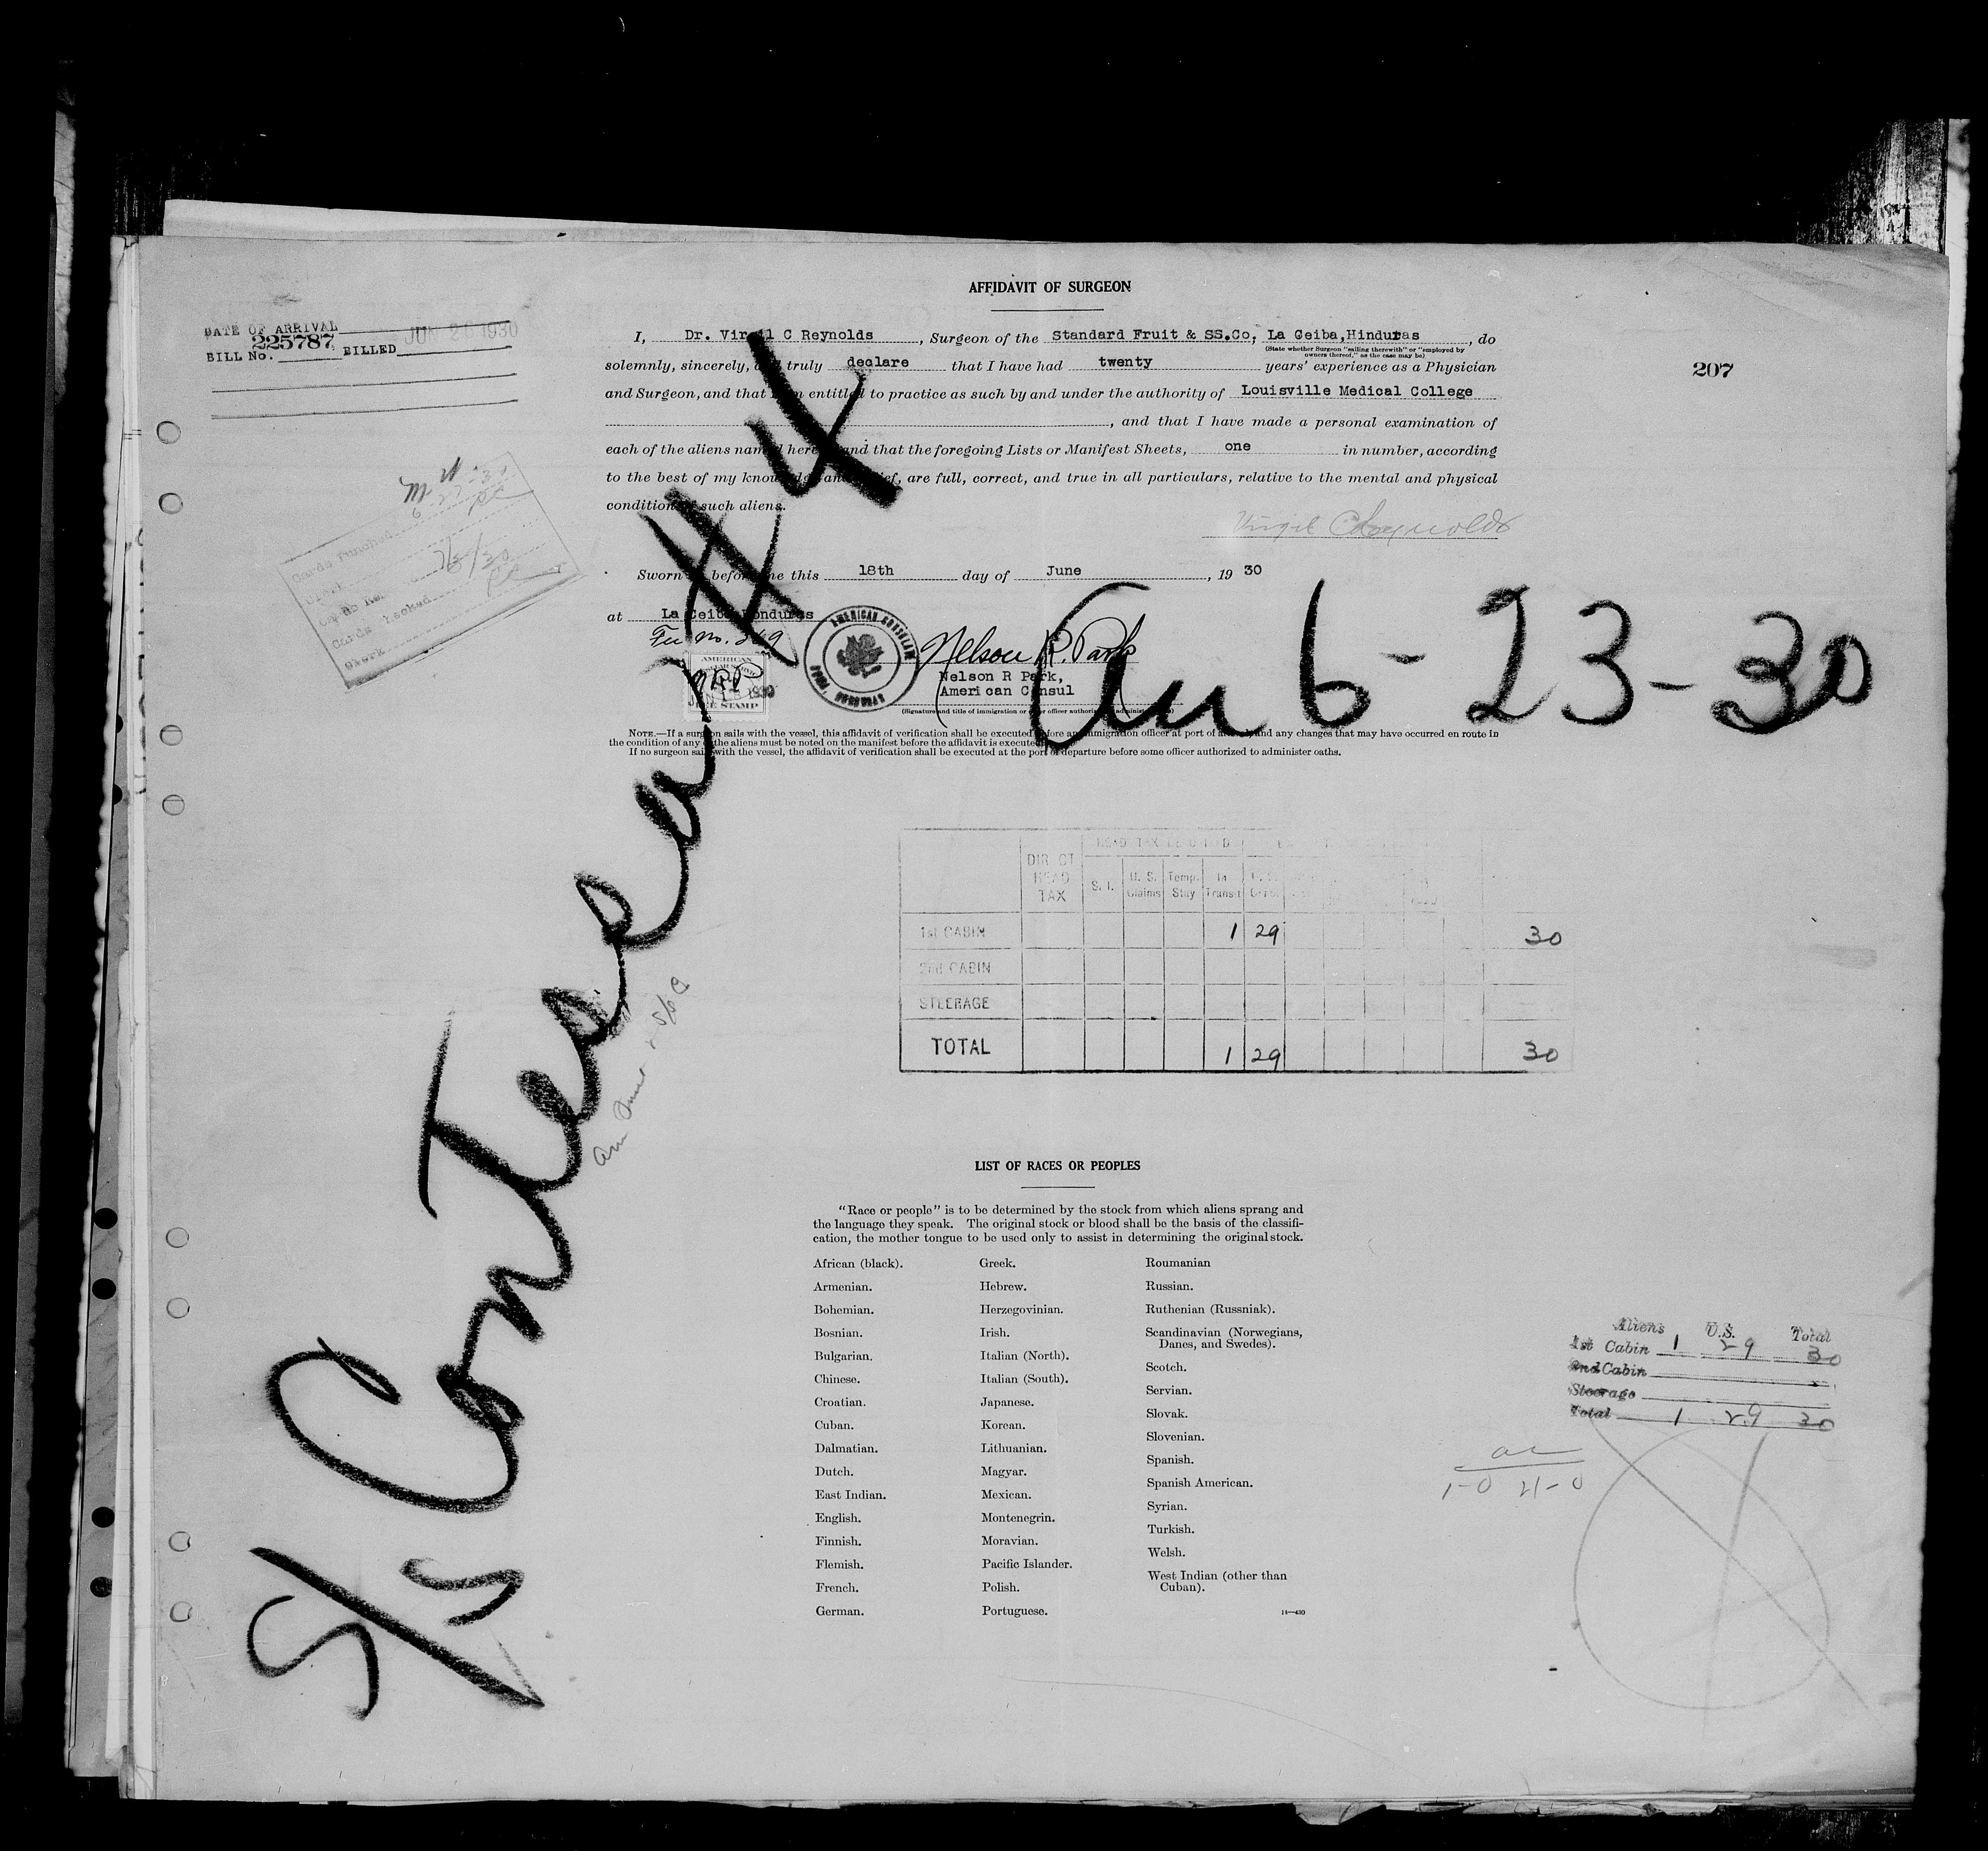 AFFIDAVIT OF SURGEON
DATE OF ARRIVAL JUN 26 1930
225787
BILL No. BILLED
207
I, Dr. Virgil C Reynolds, Surgeon of the Standard Fruit & SS.Co, La Ceiba, Hinduras, do
(State whether Surgeon "sailing therewith" or "employed by
owners thereof," as the case may be)
solemnly, sincerely, and truly declare that I have had twenty years' experience as a Physician
and Surgeon, and that I am entitled to practice as such by and under the authority of Louisville Medical College
, and that I have made a personal examination of
each of the aliens named herein and that the foregoing Lists or Manifest Sheets, one in number, according
to the best of my knowledge and belief, are full, correct, and true in all particulars, relative to the mental and physical
condition of such aliens.
Virgil C Reynolds
Sworn to before me this 18th day of June, 19 30
at La Ceiba Honduras
Fee No. 369
AMERICAN CONSULAR
FEE STAMP
Nelson R. Park
Nelson R Park,
American Consul
(Signature and title of immigration or other officer authorized to administer oaths)
NOTE.—If a surgeon sails with the vessel, this affidavit of verification shall be executed before an immigration officer at port of arrival, and any changes that may have occurred en route in
the condition of any of the aliens must be noted on the manifest before the affidavit is executed.
If no surgeon sails with the vessel, the affidavit of verification shall be executed at the port of departure before some officer authorized to administer oaths.
Cards Punched
Clerk
Cards Checked
Clerk
S/S Contessa #4
Arr 6-23-30
DIRECT HEAD TAX
S. I. U. S. Claims Temp. Stay In Transit
1st CABIN 1 29 30
2nd CABIN
STEERAGE
TOTAL 1 29 30
LIST OF RACES OR PEOPLES
"Race or people" is to be determined by the stock from which aliens sprang and
the language they speak. The original stock or blood shall be the basis of the classifi-
cation, the mother tongue to be used only to assist in determining the original stock.
African (black).
Armenian.
Bohemian.
Bosnian.
Bulgarian.
Chinese.
Croatian.
Cuban.
Dalmatian.
Dutch.
East Indian.
English.
Finnish.
Flemish.
French.
German.
Greek.
Hebrew.
Herzegovinian.
Irish.
Italian (North).
Italian (South).
Japanese.
Korean.
Lithuanian.
Magyar.
Mexican.
Montenegrin.
Moravian.
Pacific Islander.
Polish.
Portuguese.
Roumanian
Russian.
Ruthenian (Russniak).
Scandinavian (Norwegians,
Danes, and Swedes).
Scotch.
Servian.
Slovak.
Slovenian.
Spanish.
Spanish American.
Syrian.
Turkish.
Welsh.
West Indian (other than
Cuban).
14—430
Aliens U.S. Total
1st Cabin 1 29 30
2nd Cabin
Steerage
Total 1 29 30